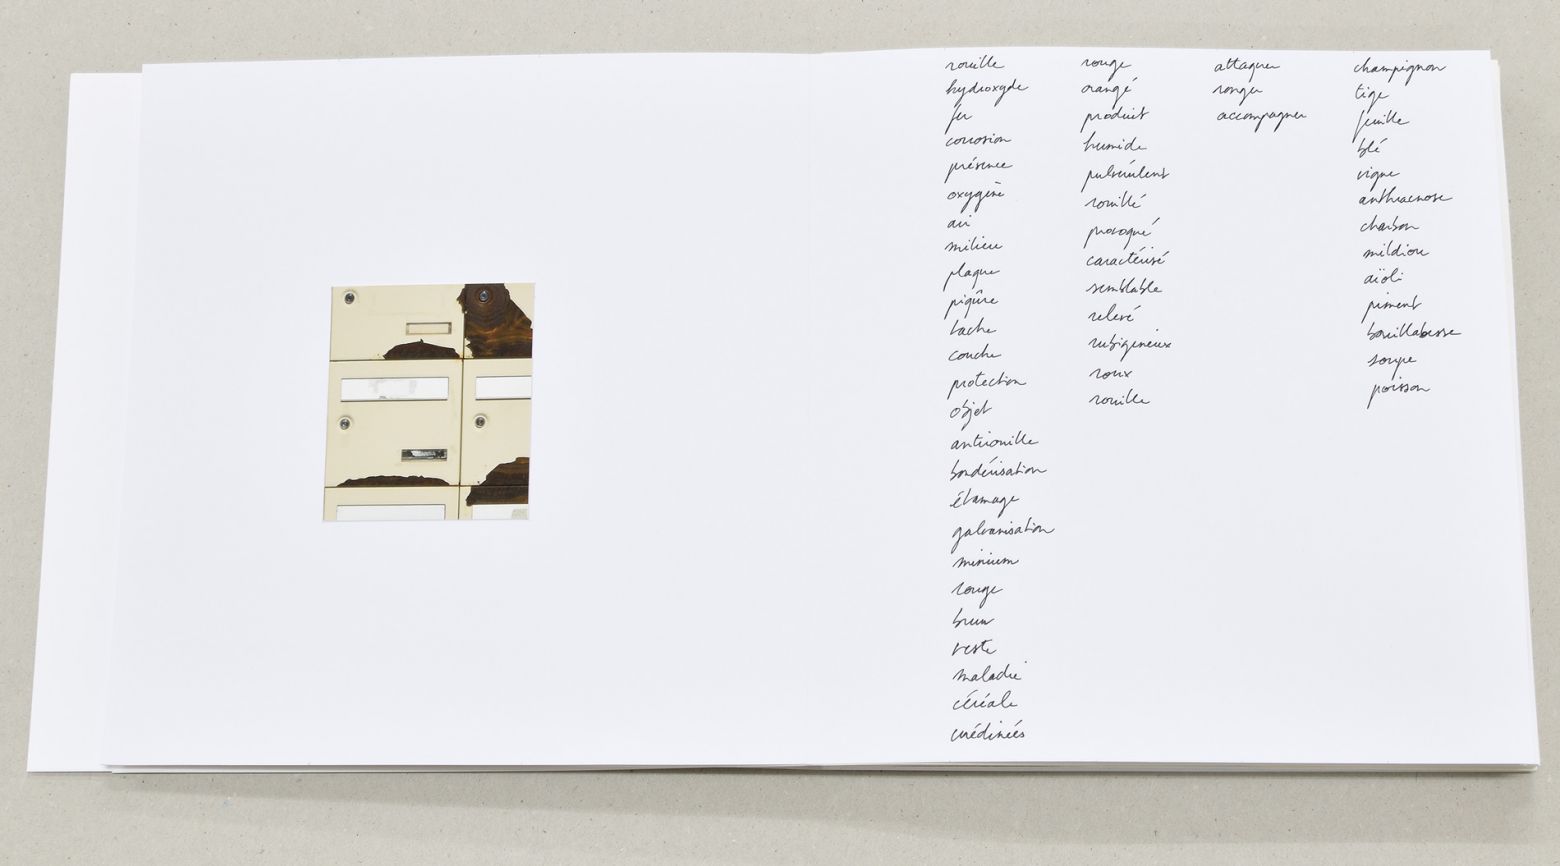 rouille
hydroxyde
fer
corrosion
présence
oxygène
air
milieu
plaque
piqûre
tache
couche
protection
objet
antirouille
bondérisation
étamage
galvanisation
minium
rouge
brun
veste
maladie
céréale
urédinées
rouge
orangé
produit
humide
pulvérulent
rouillé
provoqué
caractérisé
semblable
relevé
rubigineux
roux
rouille
attaquer
ronger
accompagner
champignon
tige
feuille
blé
vigne
anthracnose
charbon
mildiou
aïoli
piment
bouillabesse
soupe
poisson